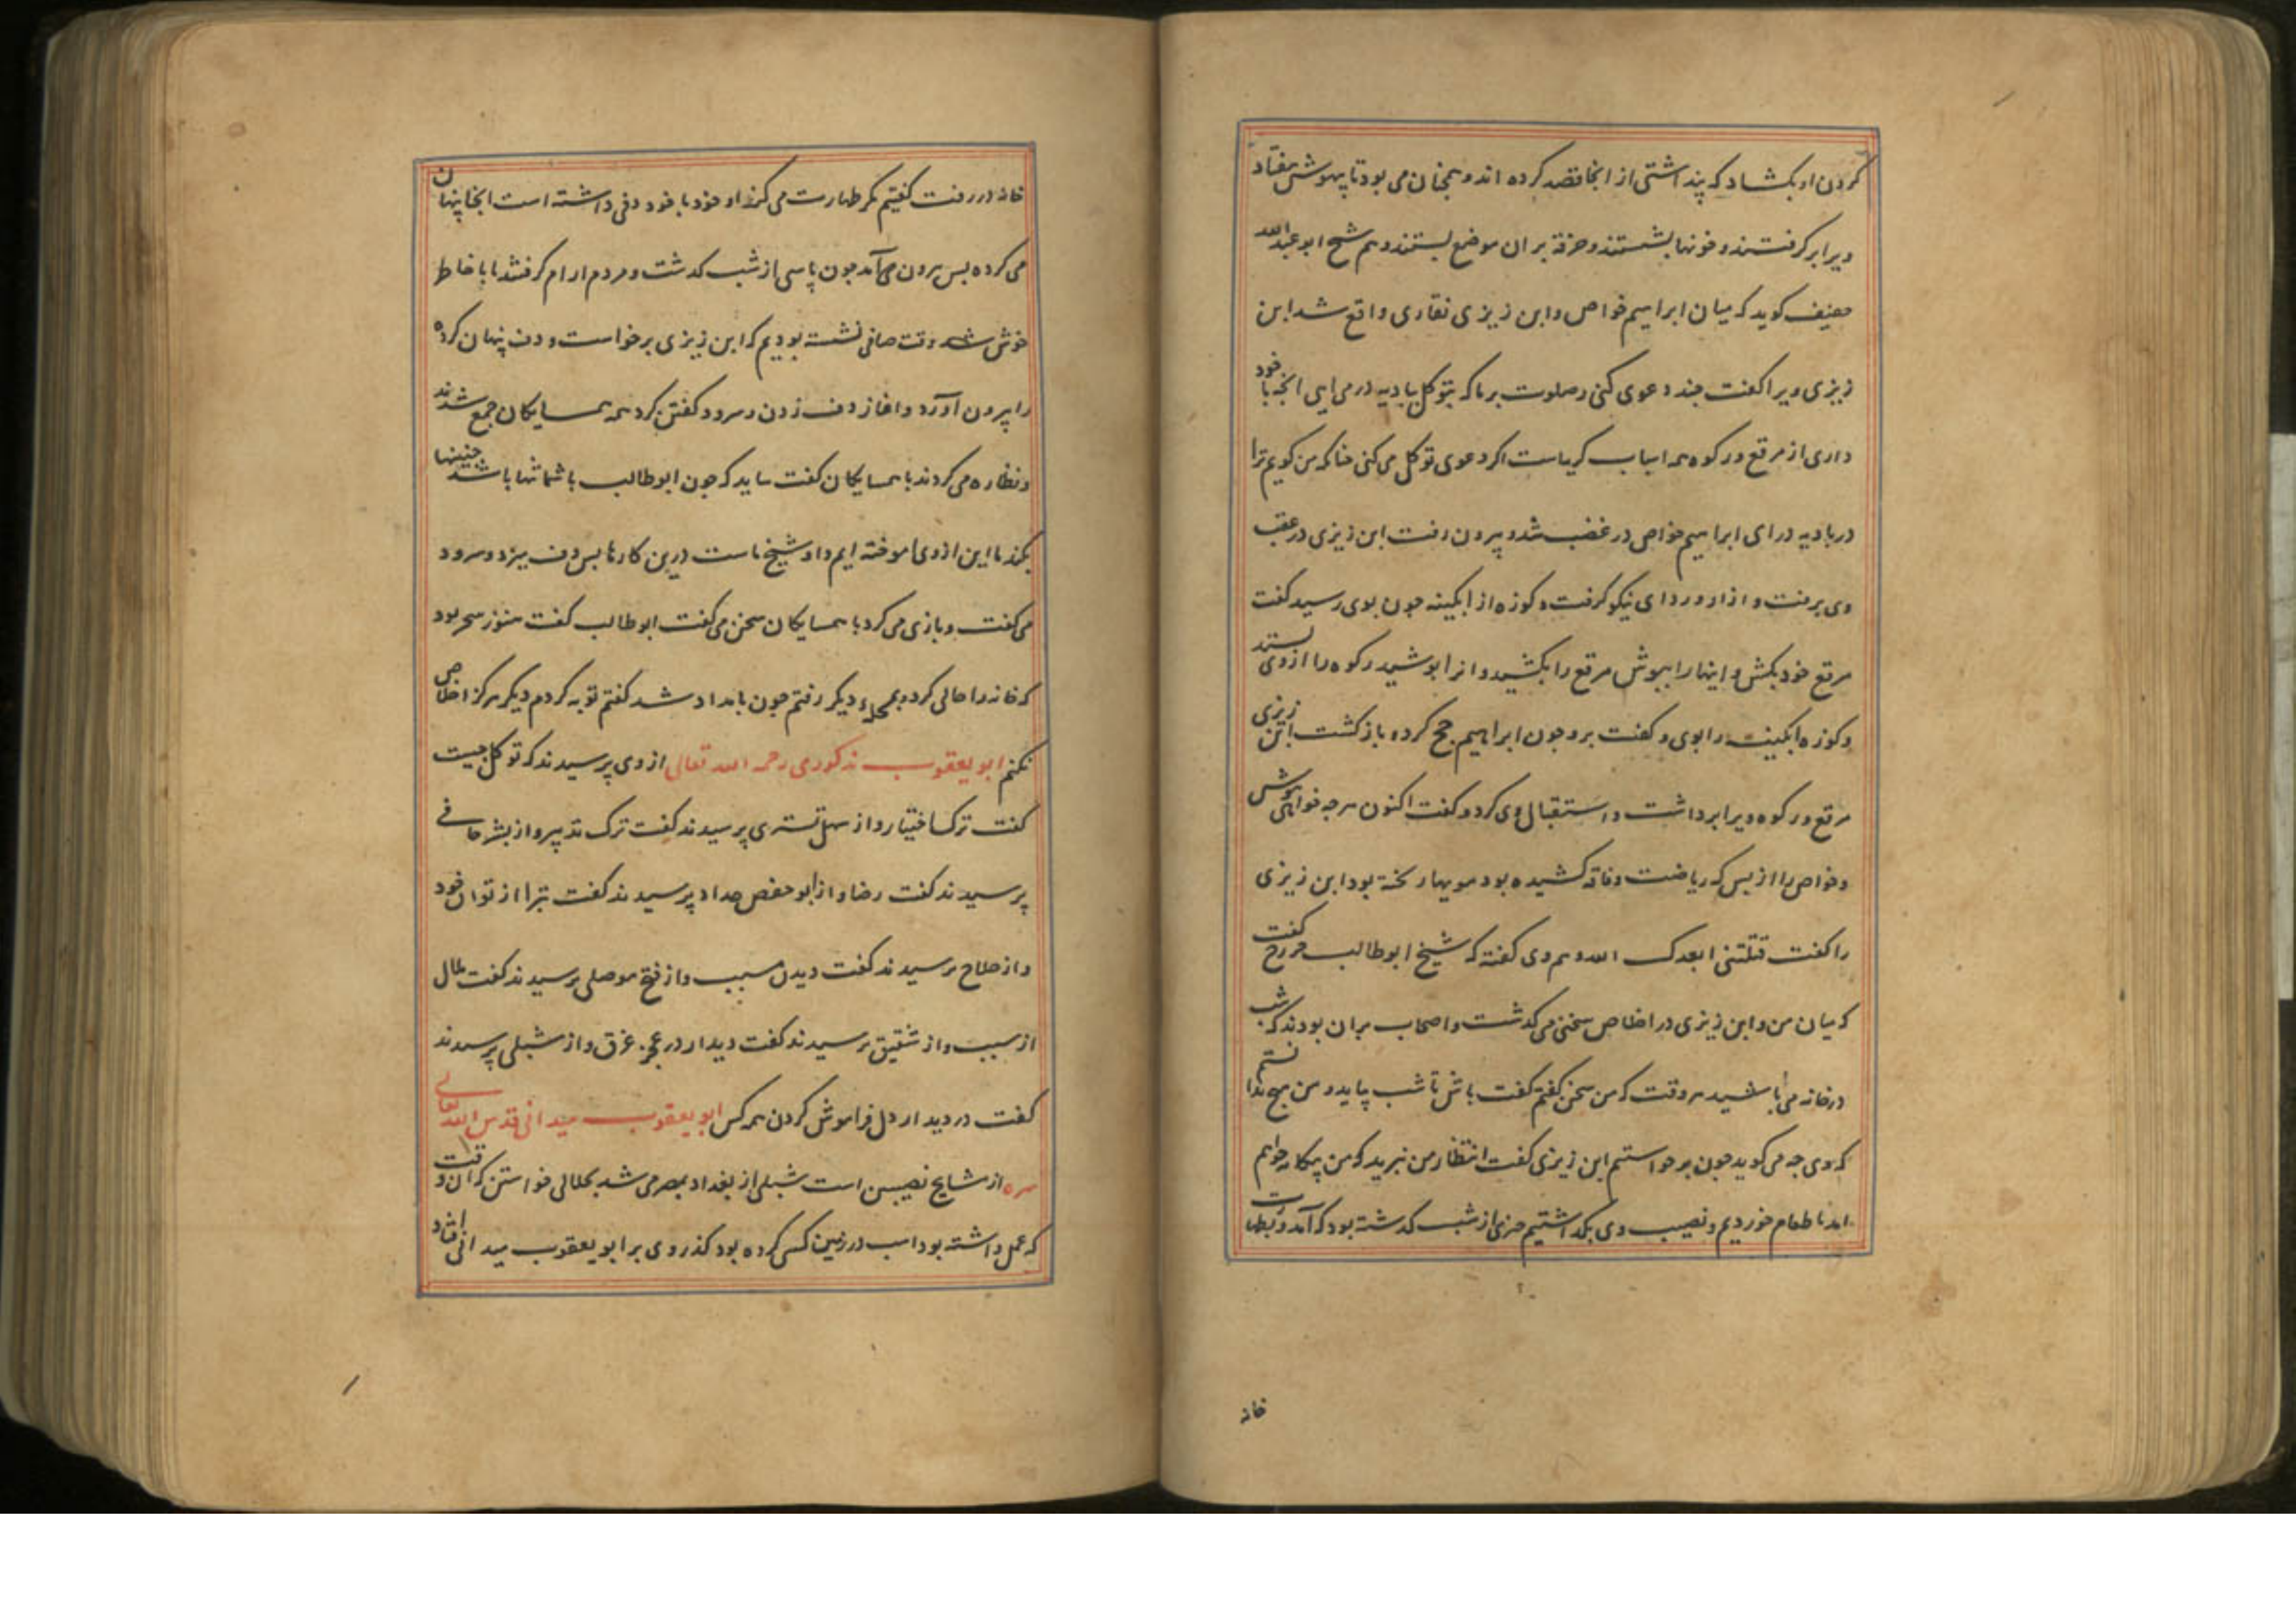 کردن او بکشاد که پنداشتی از انجا قصد کرده اند و همچنان می بود تا بیهوش بیفتاد
ویرا بر گرفتند و خونها بشستند و خرقه بر ان موضع بستند و هم شیخ ابو عبدالله
خفیف کوید که میان ابراهیم خواص و ابن زیزی نقاری واقع شد ابن
زیزی ویرا کفت چند دعوی کنی و صلوت بر ما که بتوکل ببادیه در می ایی انچه با خود
داری از مرقع و رکوه همه اسباب کدیهاست اکر دعوی توکل می کنی چنانکه من کویم ترا
در بادیه درای ابراهیم خواص در غضب شد و بیرون رفت ابن زیزی در عقب
وی برفت و ازار و ردای نیکو کرفت و کوزه از ابکینه جون بوی رسید کفت
مرقع خود بکش و اینها را بپوش مرقع را بکشید و انرا بوشید رکوه را از وی بستد
و کوزه ابکینه را بوی و کفت برو جون ابراهیم حج کرده باز کشت ابن زیزی
مرقع و رکوه ویرا برداشت و استقبال وی کرد و کفت اکنون هرچه خواهی پوش
و خواص را از بس که ریاضت و فاقه کشیده بود مویها ریخته بود ابن زیزی
را کفت قتلتنی ابعدک الله و هم وی کفته که شیخ ابو طالب خزرج کفت
که میان من و ابن زیزی در اخلاص سخنی می کذشت و اصحاب بران بودند که شب
در خانه می باشید هر وقت که من سخن کفتم کفت باش تا شب بیاید و من هیچ ندانستم
که وی چه می کوید جون برخواستیم ابن زیزی کفت انتظار من نبرید که من بیکاه خواهم
امد ما طعام خوردیم و نصیب وی بکذاشتیم جزی از شب کذشته بود که آمد و بطهارت
خانه
خانه در رفت کفتیم مکر طهارت می کند او خود با خود دفی داشته است انجا پنهان
می کرده بس بیرون می آمد جون پاسی از شب کذشت و مردم ارام کرفتند ما با خاطر
خوش شد وقت صافی نشسته بودیم که ابن زیزی برخواست و دف پنهان کرده
را بیرون آورد و اغاز دف زدن و سرود کفتن کرد همه همسایکان جمع شدند
و نظاره می کردند با همسایکان کفت بباید که جون ابو طالب با شما تنها باشد چنینها
بکند ما این از وی آموخته ایم و او شیخ ماست درین کارها بس دف میزد و سرود
می کفت و بازی می کرد با همسایکان سخن می کفت ابو طالب کفت هنوز سحر بود
که خانه را خالی کرده و بمحله دیکر رفتم جون بامداد شد کفتم توبه کردم دیکر هرکز اخلاص
نکنم ابو یعقوب مذکوری رحمه الله تعالی از وی پرسیدند که توکل چیست
کفت ترک اختیار و از سهل تستری پرسیدند کفت ترک تدبیر و از بشر حافی
پرسیدند کفت رضا و از ابو حفص حداد پرسیدند کفت تبرا از توان خود
و از حلاج پرسیدند کفت دیدن مسبب و از فتح موصلی پرسیدند کفت ملال
از سبب و از شقیق پرسیدند کفت دیدار در عجز غرق و از شبلی پرسیدند
کفت در دیدار دل فراموش کردن همه کس ابو یعقوب میدانی قدس الله تعالی
سره از مشایخ نصیبین است شبلی از بغداد بمصر می شد بحلالی خواستن که ان وقت
که عمل داشته بود اسب در زمین کسی کرده بود کذر وی بر ابو یعقوب میدانی افتاد